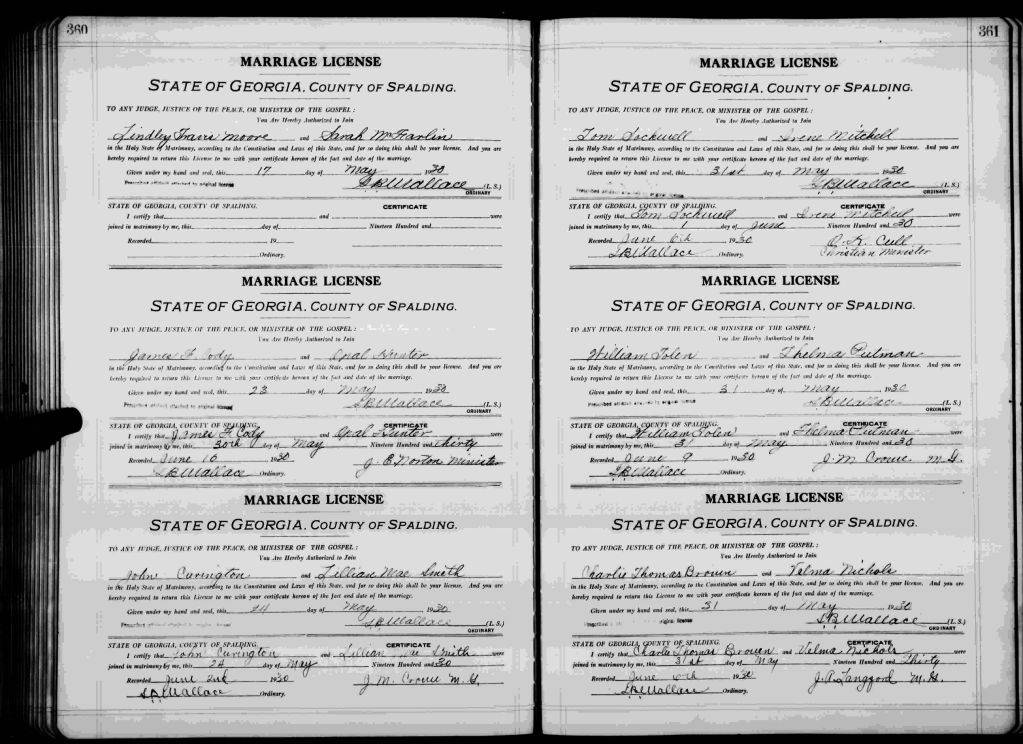 360
MARRIAGE LICENSE
STATE OF GEORGIA, COUNTY OF SPALDING.
TO ANY JUDGE, JUSTICE OF THE PEACE, OR MINISTER OF THE GOSPEL:
You Are Hereby Authorized to Join
Lindley Travis Moore and Sarah McHarlin
in the Holy State of Matrimony, according to the Constitution and Laws of this State, and for so doing this shall be your license. And you are
hereby required to return this License to me with your certificate hereon of the fact and date of the marriage.
Given under my hand and seal, this 17 day of May 1930
Prescribed affidavit attached to original license S.B. Wallace (L. S.)
ORDINARY
STATE OF GEORGIA, COUNTY OF SPALDING. CERTIFICATE
I certify that and were
joined in matrimony by me, this day of Nineteen Hundred and
Recorded 19
Ordinary.
MARRIAGE LICENSE
STATE OF GEORGIA, COUNTY OF SPALDING.
TO ANY JUDGE, JUSTICE OF THE PEACE, OR MINISTER OF THE GOSPEL:
You Are Hereby Authorized to Join
James F. Cody and Opal Hunter
in the Holy State of Matrimony, according to the Constitution and Laws of this State, and for so doing this shall be your license. And you are
hereby required to return this License to me with your certificate hereon of the fact and date of the marriage.
Given under my hand and seal, this 23 day of May 1930
Prescribed affidavit attached to original license S.B. Wallace (L. S.)
ORDINARY
STATE OF GEORGIA, COUNTY OF SPALDING. CERTIFICATE
I certify that James F. Cody and Opal Hunter were
joined in matrimony by me, this 30th day of May Nineteen Hundred and Thirty
Recorded June 10 1930 J. E. Norton Minister
S.B. Wallace Ordinary.
MARRIAGE LICENSE
STATE OF GEORGIA, COUNTY OF SPALDING.
TO ANY JUDGE, JUSTICE OF THE PEACE, OR MINISTER OF THE GOSPEL:
You Are Hereby Authorized to Join
John Curington and Lillian Mae Smith
in the Holy State of Matrimony, according to the Constitution and Laws of this State, and for so doing this shall be your license. And you are
hereby required to return this License to me with your certificate hereon of the fact and date of the marriage.
Given under my hand and seal, this 24 day of May 1930
Prescribed affidavit attached to original license S.B. Wallace (L. S.)
ORDINARY
STATE OF GEORGIA, COUNTY OF SPALDING. CERTIFICATE
I certify that John Curington and Lillian Mae Smith were
joined in matrimony by me, this 24 day of May Nineteen Hundred and 30
Recorded June 2nd 1930 J. M. Crowe M. G.
S.B. Wallace Ordinary.
361
MARRIAGE LICENSE
STATE OF GEORGIA, COUNTY OF SPALDING.
TO ANY JUDGE, JUSTICE OF THE PEACE, OR MINISTER OF THE GOSPEL:
You Are Hereby Authorized to Join
Tom Lockwell and Irene Mitchell
in the Holy State of Matrimony, according to the Constitution and Laws of this State, and for so doing this shall be your license. And you are
hereby required to return this License to me with your certificate hereon of the fact and date of the marriage.
Given under my hand and seal, this 31st day of May 1930
Prescribed affidavit attached to original license S.B. Wallace (L. S.)
ORDINARY
STATE OF GEORGIA, COUNTY OF SPALDING. CERTIFICATE
I certify that Tom Lockwell and Irene Mitchell were
joined in matrimony by me, this 1 day of June Nineteen Hundred and 30
Recorded June 6th 1930 K. Cull
S.B. Wallace Ordinary. Christian Minister
MARRIAGE LICENSE
STATE OF GEORGIA, COUNTY OF SPALDING.
TO ANY JUDGE, JUSTICE OF THE PEACE, OR MINISTER OF THE GOSPEL:
You Are Hereby Authorized to Join
William Tolen and Thelma Putman
in the Holy State of Matrimony, according to the Constitution and Laws of this State, and for so doing this shall be your license. And you are
hereby required to return this License to me with your certificate hereon of the fact and date of the marriage.
Given under my hand and seal, this 31 day of May 1930
Prescribed affidavit attached to original license S.B. Wallace (L. S.)
ORDINARY
STATE OF GEORGIA, COUNTY OF SPALDING. CERTIFICATE
I certify that William Tolen and Thelma Putman were
joined in matrimony by me, this 31 day of May Nineteen Hundred and 30
Recorded June 9 1930 J. M. Crowe M. G.
S.B. Wallace Ordinary.
MARRIAGE LICENSE
STATE OF GEORGIA, COUNTY OF SPALDING.
TO ANY JUDGE, JUSTICE OF THE PEACE, OR MINISTER OF THE GOSPEL:
You Are Hereby Authorized to Join
Charlie Thomas Brown and Velma Nichols
in the Holy State of Matrimony, according to the Constitution and Laws of this State, and for so doing this shall be your license. And you are
hereby required to return this License to me with your certificate hereon of the fact and date of the marriage.
Given under my hand and seal, this 31 day of May 1930
Prescribed original license S.B. Wallace (L. S.)
ORDINARY
STATE OF GEORGIA, COUNTY OF SPALDING. CERTIFICATE
I certify that Charlie Thomas Brown and Velma Nichols were
joined in matrimony by me, this 31st day of May Nineteen Hundred and Thirty
Recorded June 6th 1930 J. A. Langford M. G.
S.B. Wallace Ordinary.